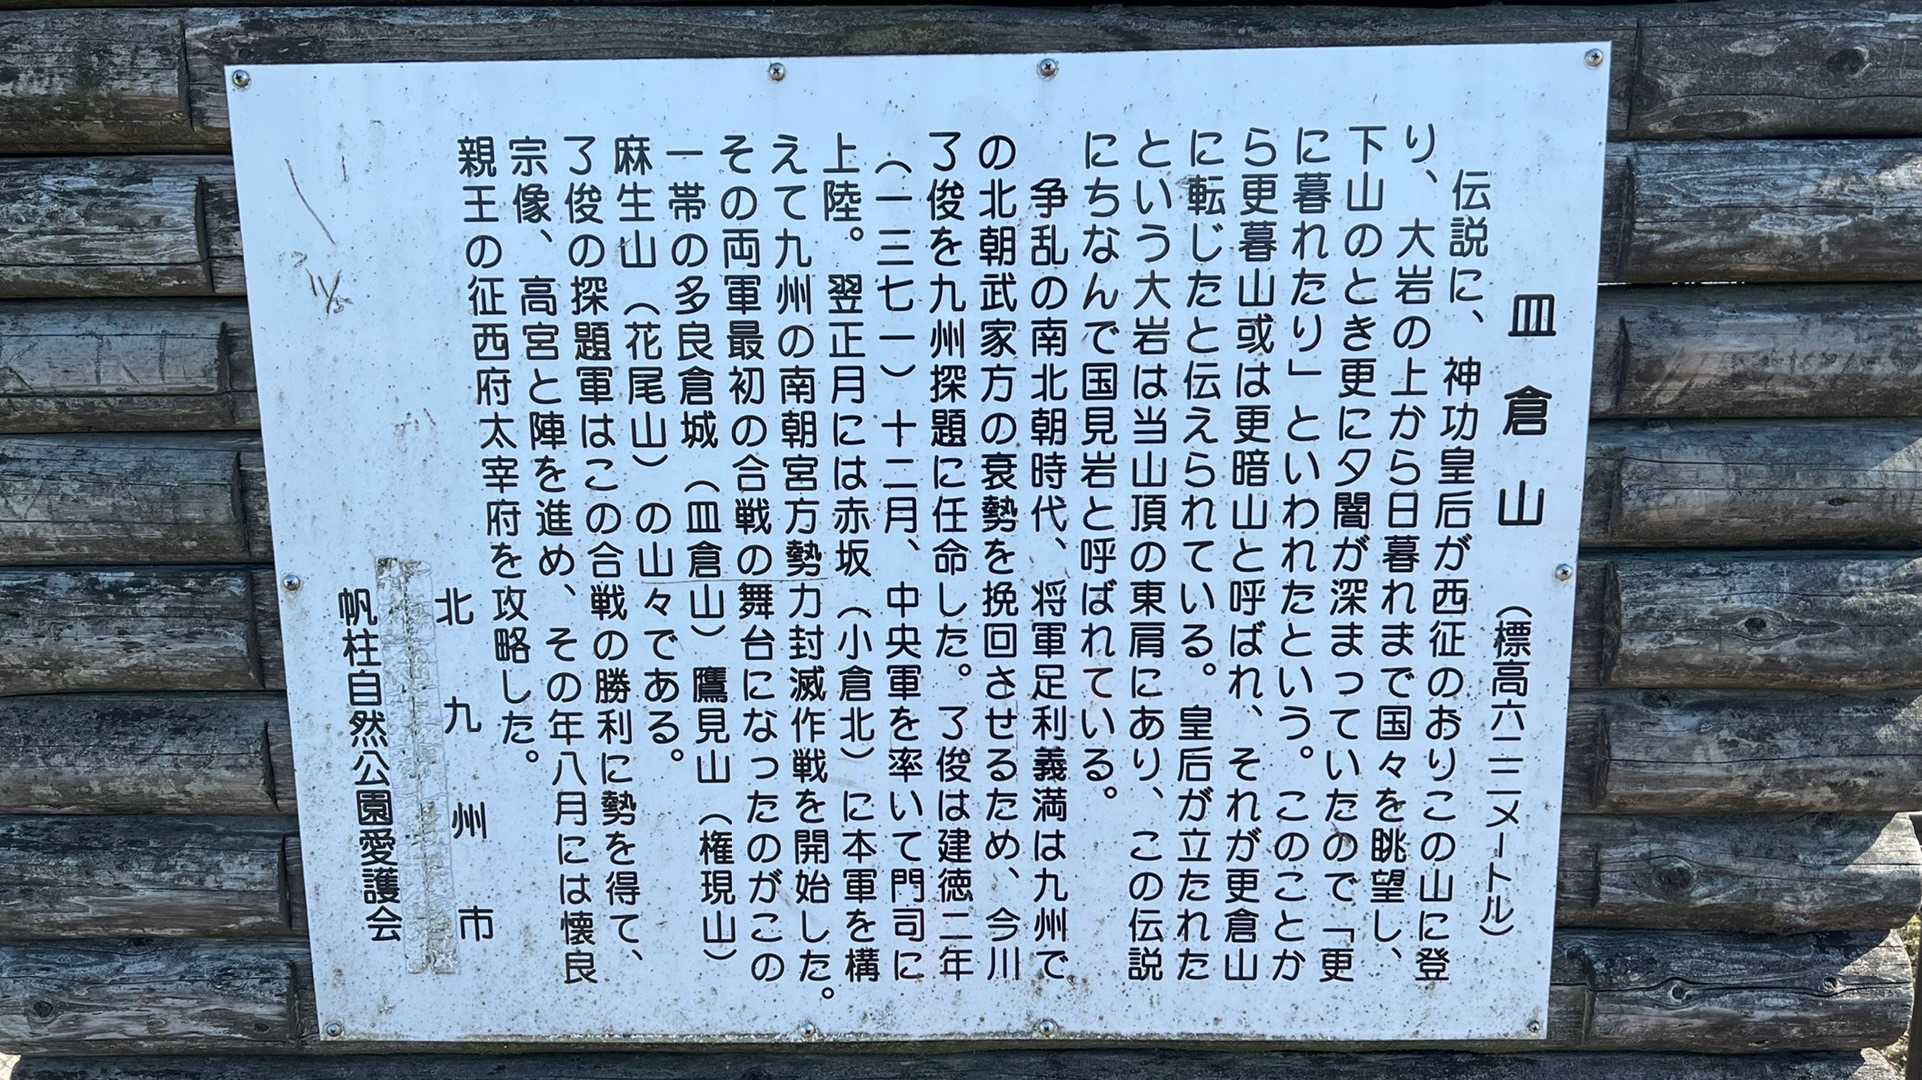 皿倉山 （標高六二二メートル）
伝説に、神功皇后が西征のおりこの山に登
り、大岩の上から日暮れまで国々を眺望し、
下山のとき更に夕闇が深まっていたので「更
に暮れたり」といわれたという。このことか
ら更暮山或は更暗山と呼ばれ、それが更倉山
に転じたと伝えられている。皇后が立たれた
という大岩は当山頂の東肩にあり、この伝説
にちなんで国見岩と呼ばれている。
争乱の南北朝時代、将軍足利義満は九州で
の北朝武家方の衰勢を挽回させるため、今川
了俊を九州探題に任命した。了俊は建徳二年
（一三七一）十二月、中央軍を率いて門司に
上陸。翌正月には赤坂（小倉北）に本軍を構
えて九州の南朝宮方勢力封滅作戦を開始した。
その両軍最初の合戦の舞台になったのがこの
一帯の多良倉城（皿倉山）鷹見山（権現山）
麻生山（花尾山）の山々である。
了俊の探題軍はこの合戦の勝利に勢を得て、
宗像、高宮と陣を進め、その年八月には懐良
親王の征西府太宰府を攻略した。
北九州市
帆柱自然公園愛護会